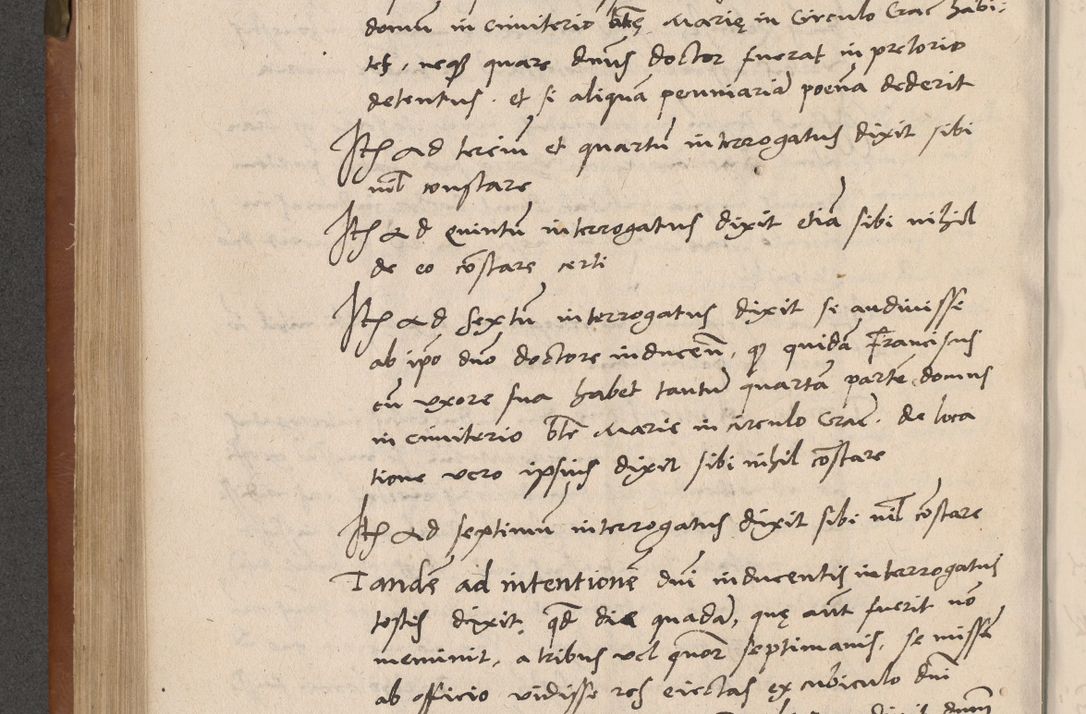 domū in cimiterio btę Marię in Circulo Crac̄ habi-
tet, neqꝫ quare dnūs doctor fuerat in pretorio
detentus. et si aliquā pecuniariā poenā dederit
Itꝫ Ad terciū et quartū interrogatus dixit sibi
nil̄ constare
Itꝫ Ad Quintū interrogatus dixit etiā sibi nihil
de eo cōstare certi
Itꝫ Ad Sextū interrogatus dixit se audiuisse
ab ip̄o dno doctore inducen̄, qꝫ quidā Franciscus
cū vxore sua habet tantū quartā partē domus
in cimiterio bt̄e Marie in circulo Crac̄. de loca
tione vero ipsius dixit sibi nihil cōstare
Itꝫ Ad septimū interrogatus dixit sibi nil̄ cōstare
Tandē ad intentionē dn̄i inducentis interrogatus
testis dixit, qd̄ die quadā, quę aūt fuerit nō
meminit, a tribus vel quor̄ septimanis, se missū
ab officio vidisse res eiectas ex cubiculo dn̄i